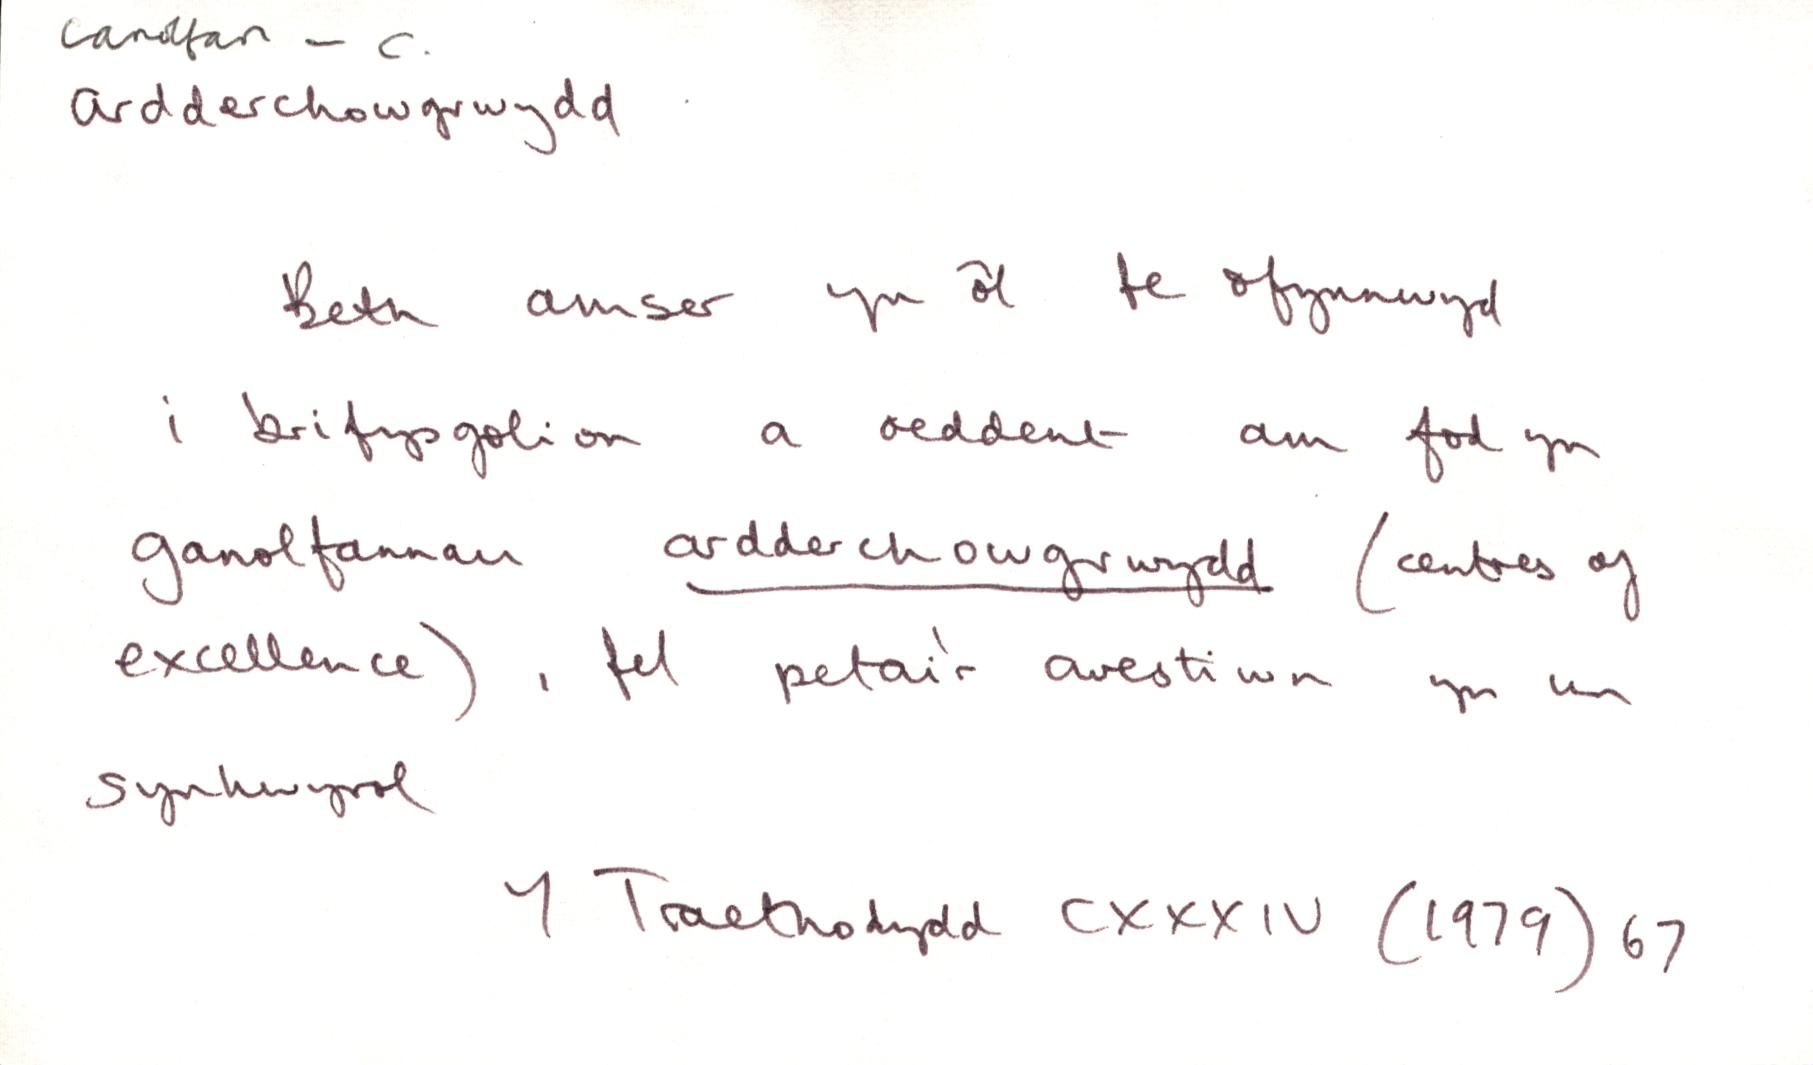 canolfan – c.
ardderchowgrwydd
Beth amser yn ôl fe ofynnwyd
i brifysgolion a oeddent am fod yn
ganolfannau ardderchowgrwydd (centres of
excellence), fel petai'r cwestiwn yn un
synhwyrol
Y Traethodydd CXXXIV (1979) 67